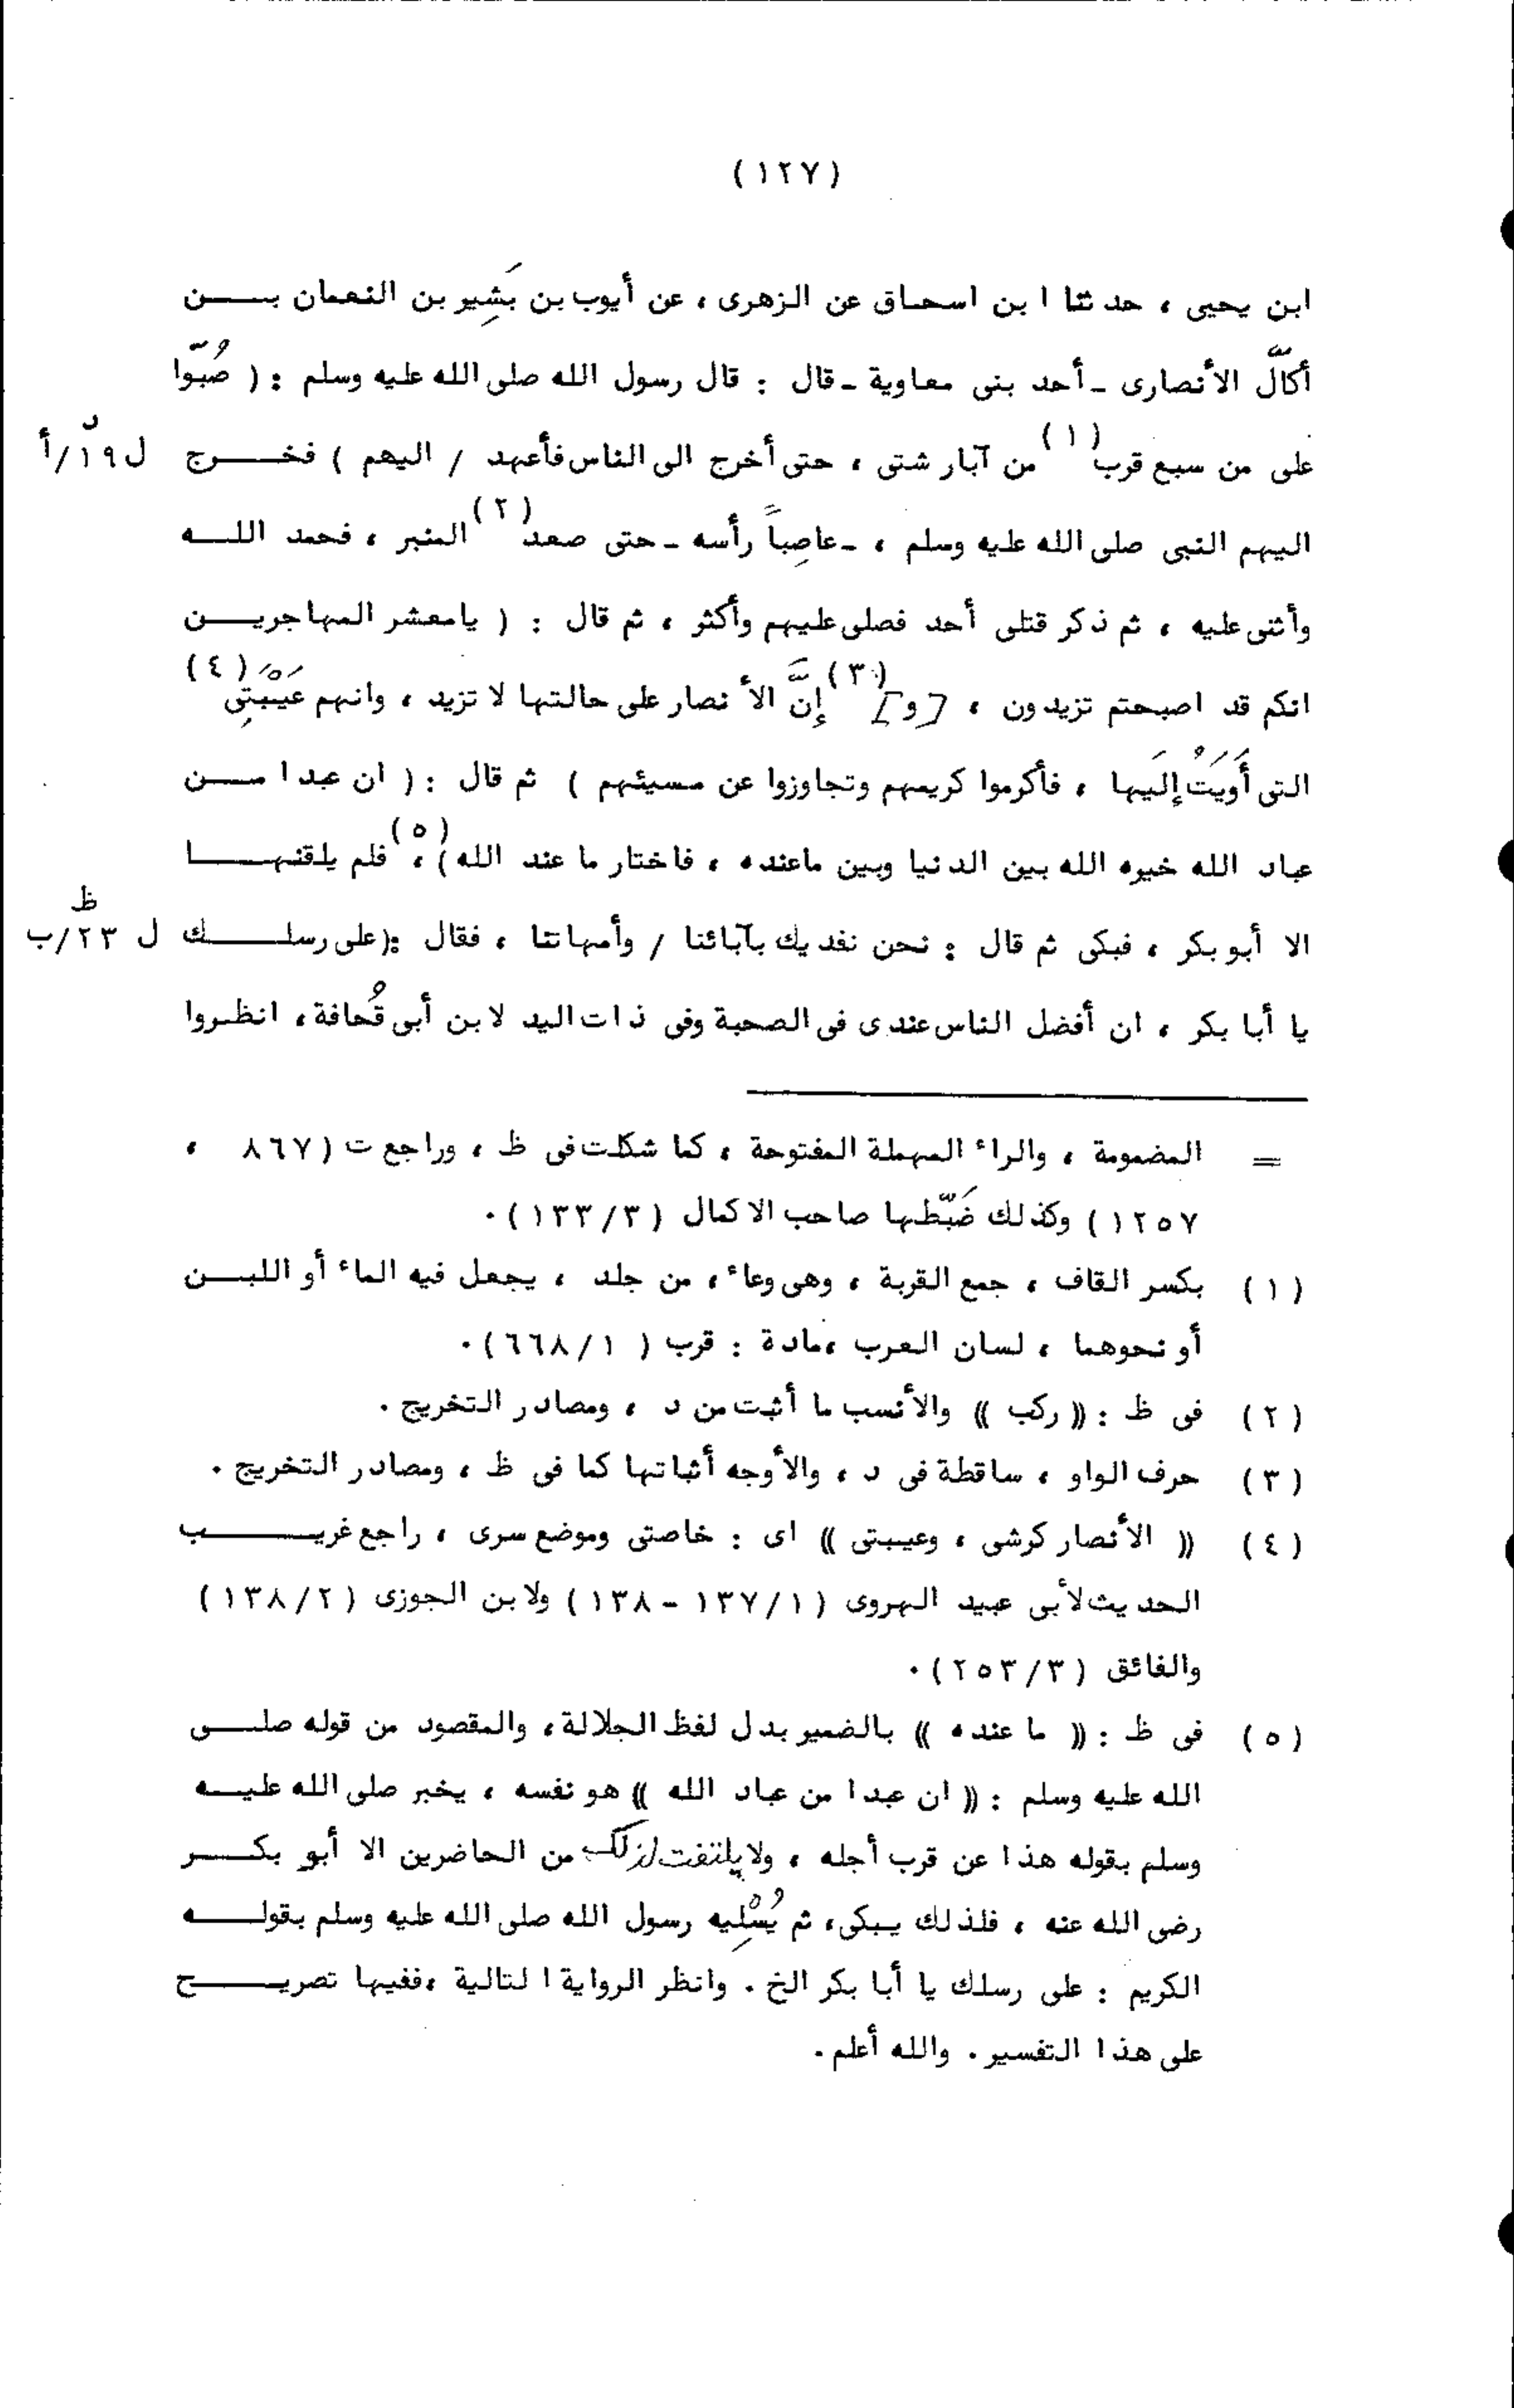 (١٢٧)
ابن يحيى ، حدثنا ابن اسحاق عن الزهرى ، عن أيوب بن بَشِير بن النعمان بن
أكَّال الأنصارى - أحد بنى معاوية - قال : قال رسول الله صلى الله عليه وسلم : ( صُبّوا
على من سبع قرب (١) من آبار شتى ، حتى أخرج الى الناس فأعهد / اليهم ) فخرج
د
ل ١٩/أ
اليهم النبى صلى الله عليه وسلم ، - عاصِباً رأسه - حتى صعد (٢) المنبر ، فحمد الله
وأثنى عليه ، ثم ذكر قتلى أحد فصلى عليهم وأكثر ، ثم قال : ( يامعشر المهاجرين
انكم قد اصبحتم تزيدون ، [و] (٣) إنَّ الأنصار على حالتها لا تزيد ، وانهم عَيْبَتِى (٤)
التى أَوَيتُ إلَيها ، فأكرموا كريمهم وتجاوزوا عن مسيئهم ) ثم قال : ( ان عبدا من
عباد الله خيره الله بين الدنيا وبين ماعنده ، فاختار ما عند الله ) ، (٥) فلم يلقنها
الا أبو بكر ، فبكى ثم قال : نحن نفديك بآبائنا / وأمهاتنا ، فقال :( على رسلك
ظ
ل ٢٣/ب
يا أبا بكر ، ان أفضل الناس عندى فى الصحبة وفى ذات اليد لابن أبى قُحافة ، انظروا
= المضمومة ، والراء المهملة المفتوحة ، كما شكلت فى ظ ، وراجع ت (٨٦٧ ،
١٢٥٧) وكذلك ضَبّطها صاحب الاكمال (١٣٣/٣) .
(١) بكسر القاف ، جمع القربة ، وهى وعاء ، من جلد ، يجعل فيه الماء أو اللبن
أو نحوهما ، لسان العرب ، مادة : قرب ( ٦٦٨/١) .
(٢) فى ظ : (( ركب )) والأنسب ما أثبت من د ، ومصادر التخريج .
(٣) حرف الواو ، ساقطة فى د ، والأوجه أثباتها كما فى ظ ، ومصادر التخريج .
(٤) (( الأنصار كرشى ، وعيبتى )) اى : خاصتى وموضع سرى ، راجع غريب
الحديث لأبى عبيد الهروى ( ١٣٧/١ - ١٣٨) ولابن الجوزى ( ١٣٨/٢)
والفائق ( ٢٥٣/٣) .
(٥) فى ظ : (( ما عنده )) بالضمير بدل لفظ الجلالة ، والمقصود من قوله صلى
الله عليه وسلم : (( ان عبدا من عباد الله )) هو نفسه ، يخبر صلى الله عليه
وسلم بقوله هذا عن قرب أجله ، ولا يلتفت لذلك من الحاضرين الا أبو بكر
رضى الله عنه ، فلذلك يبكى ، ثم يُسْلِيه رسول الله صلى الله عليه وسلم بقوله
الكريم : على رسلك يا أبا بكر الخ . وانظر الرواية التالية ، ففيها تصريح
على هذا التفسير . والله أعلم .